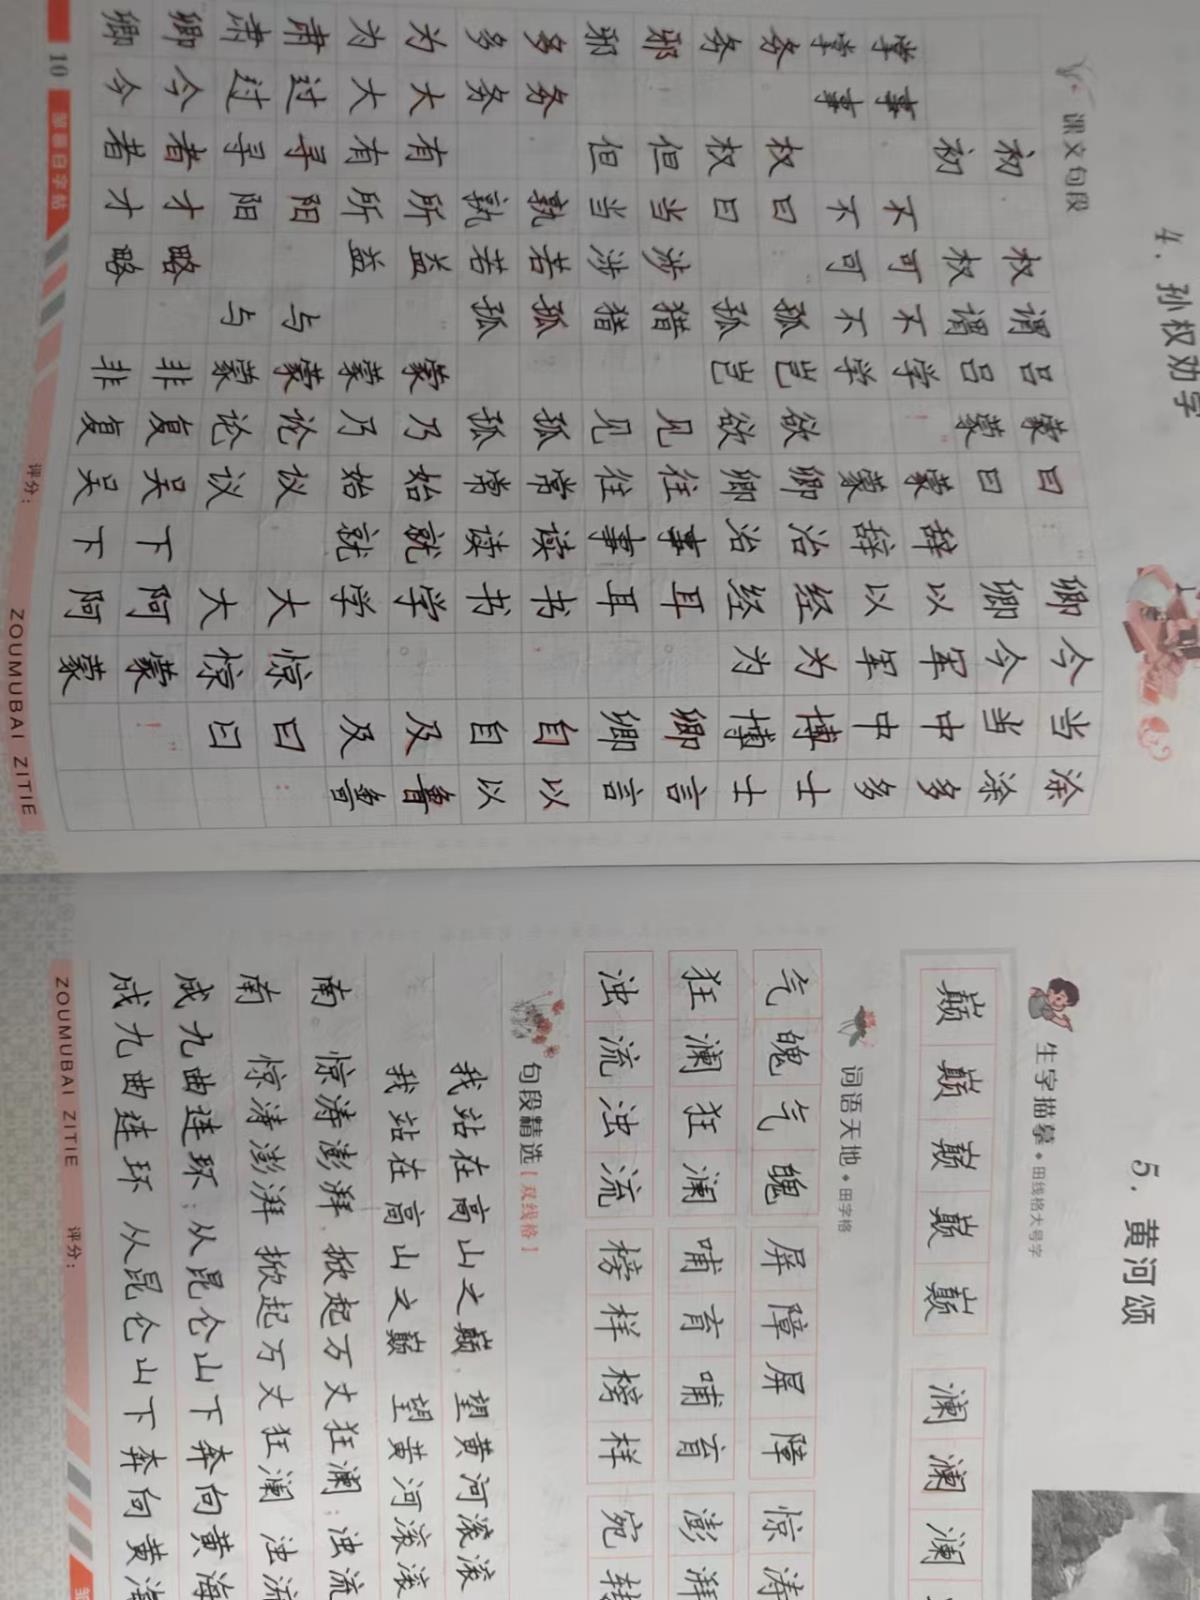 4. 孙权劝学
课文句段
初 权谓吕蒙曰:“卿今当涂
初 权谓吕蒙曰 卿今当涂
掌事 不可不学！”蒙辞以军中多
掌事 不可不学 蒙辞以军中多
务 权曰 孤岂欲卿治经为博士
务 权曰 孤岂欲卿治经为博士
邪 但当涉猎 见往事耳。卿言
邪 但当涉猎 见往事耳 卿言
多务 孰若孤 孤常读书,自以
多务 孰若孤 孤常读书 自以
为大有所益 蒙乃始就学。及鲁
为大有所益 蒙乃始就学 及鲁
肃过寻阳 与蒙论议 大惊曰:
肃过寻阳 与蒙论议 大惊曰
卿今者才略 非复吴下阿蒙！”
卿今者才略 非复吴下阿蒙
10
邹慕白字帖
评分:
ZOUMUBAI ZITIE
5. 黄河颂
生字描摹·田线格大号字
巅巅巅巅巅 澜澜澜
词语天地·田字格
气魄气魄 屏障屏障 惊涛
狂澜狂澜 哺育哺育 澎湃
浊流浊流 榜样榜样 宛转
句段精选[双线格]
我站在高山之巅,望黄河滚滚
我站在高山之巅 望黄河滚滚
南。惊涛澎湃,掀起万丈狂澜;浊流
南 惊涛澎湃 掀起万丈狂澜 浊流
成九曲连环;从昆仑山下奔向黄海
成九曲连环 从昆仑山下奔向黄海
ZOUMUBAI ZITIE
评分: